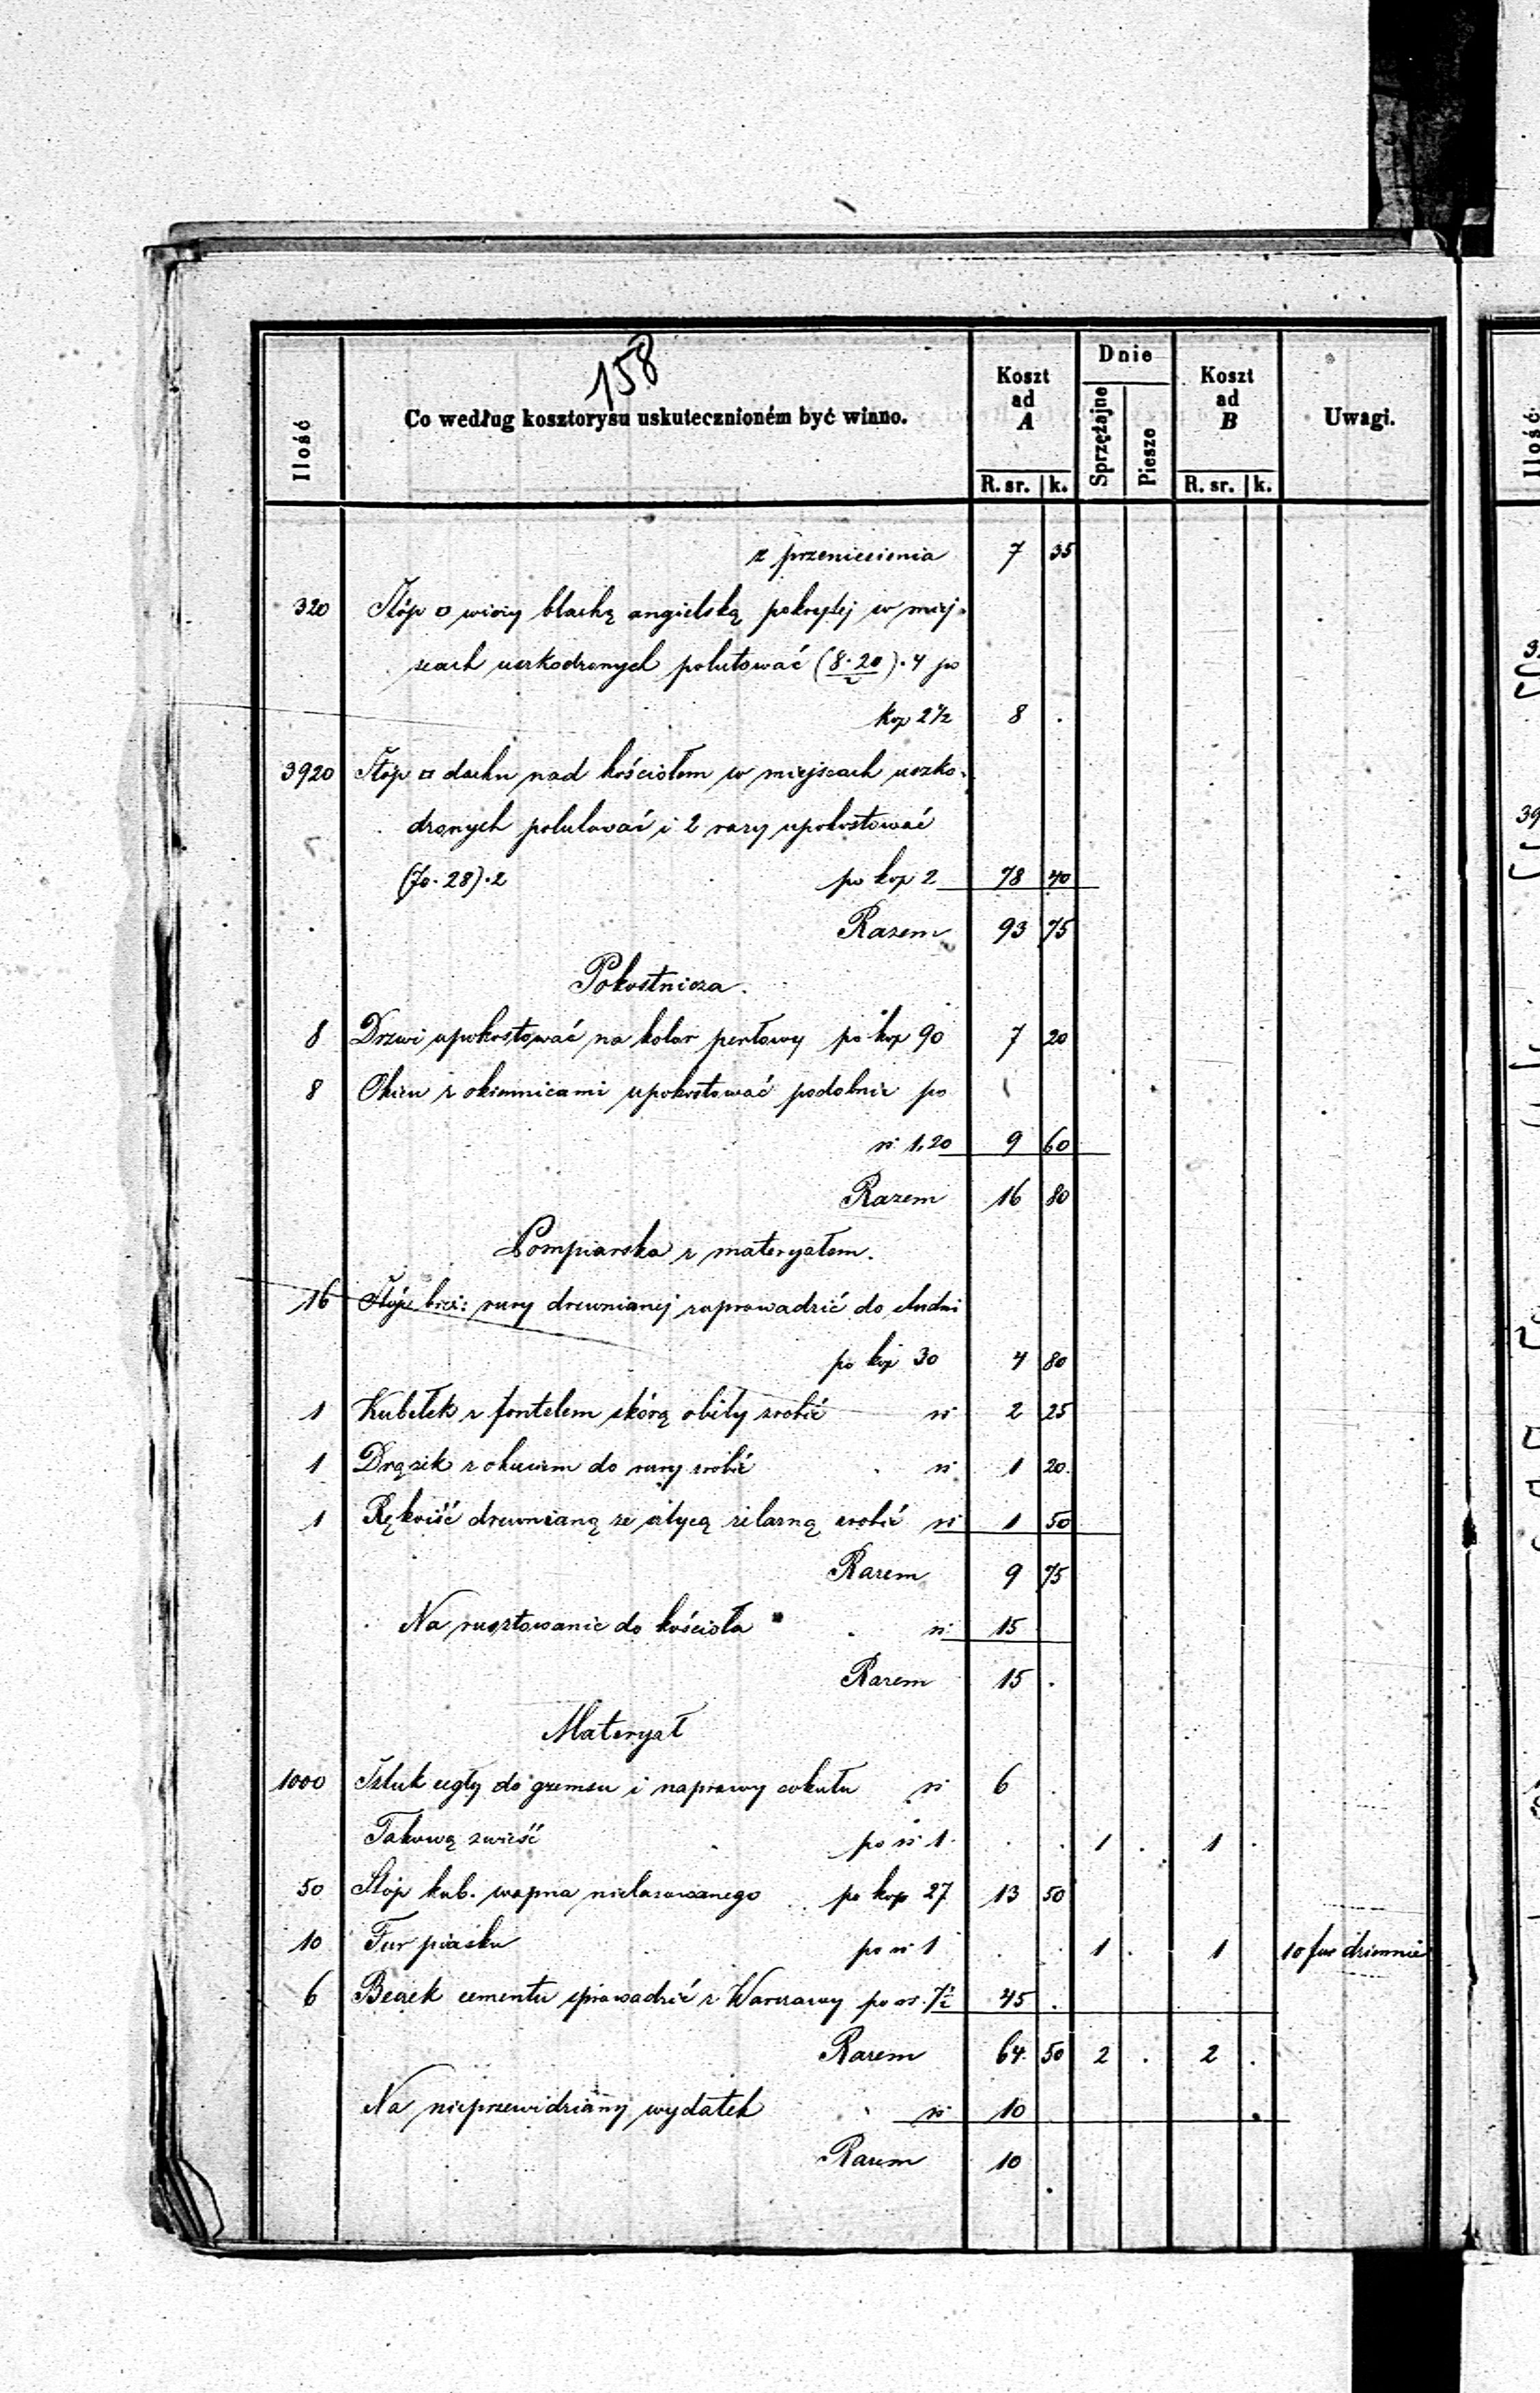 158
Ilość | Co według kosztorysu uskutecznioném być winno. | Koszt ad A R. sr. k. | Dnie Sprzężajne Piesze | Koszt ad B R. sr. k. | Uwagi.
z przeniesienia 7 35
320 Stóp □ wieży blachą angielską pokrytej w miej-
scach uszkodzonych polutować (8·20/2)·4 po
kop 2 1/2 8 .
3920 Stóp □ dachu nad kościołem w miejscach uszko-
dzonych polutować i 2 razy upokostować
(70·28)·2 po kop 2 78 40
Razem 93 75
Pokostnicza.
8 Drzwi upokostować na kolor perłowy po kop 90 7 20
8 Okien z okiennicami upokostować podobnie po
rs. 1,20 9 60
Razem 16 80
Pompiarska z materyałem.
16 Stóp bież: rury drewnianej zaprowadzić do studni
po kop 30 4 80
1 Kubełek z fontelem skórą obity zrobić rs 2 25
1 Drążek z okuciem do rury zrobić rs 1 20
1 Rękojść drewnianą ze sztycą żelazną zrobić rs 1 50
Razem 9 75
Na rusztowanie do kościoła rs. 15
Razem 15 .
Materyał
1000 Sztuk cegły do gzemsu i naprawy cokułu rs 6 .
Takową zwieść po rs. 1 . . 1 . 1 .
50 Stóp kub. wapna nielasowanego po kop 27 13 50
10 Fur piasku po rs 1 . . 1 . 1 10 fur dziennie
6 Beczek cementu sprowadzić z Warszawy po rs. 7 1/2 45 .
Razem 64 50 2 . 2 .
Na nieprzewidziany wydatek rs 10
Razem 10 .